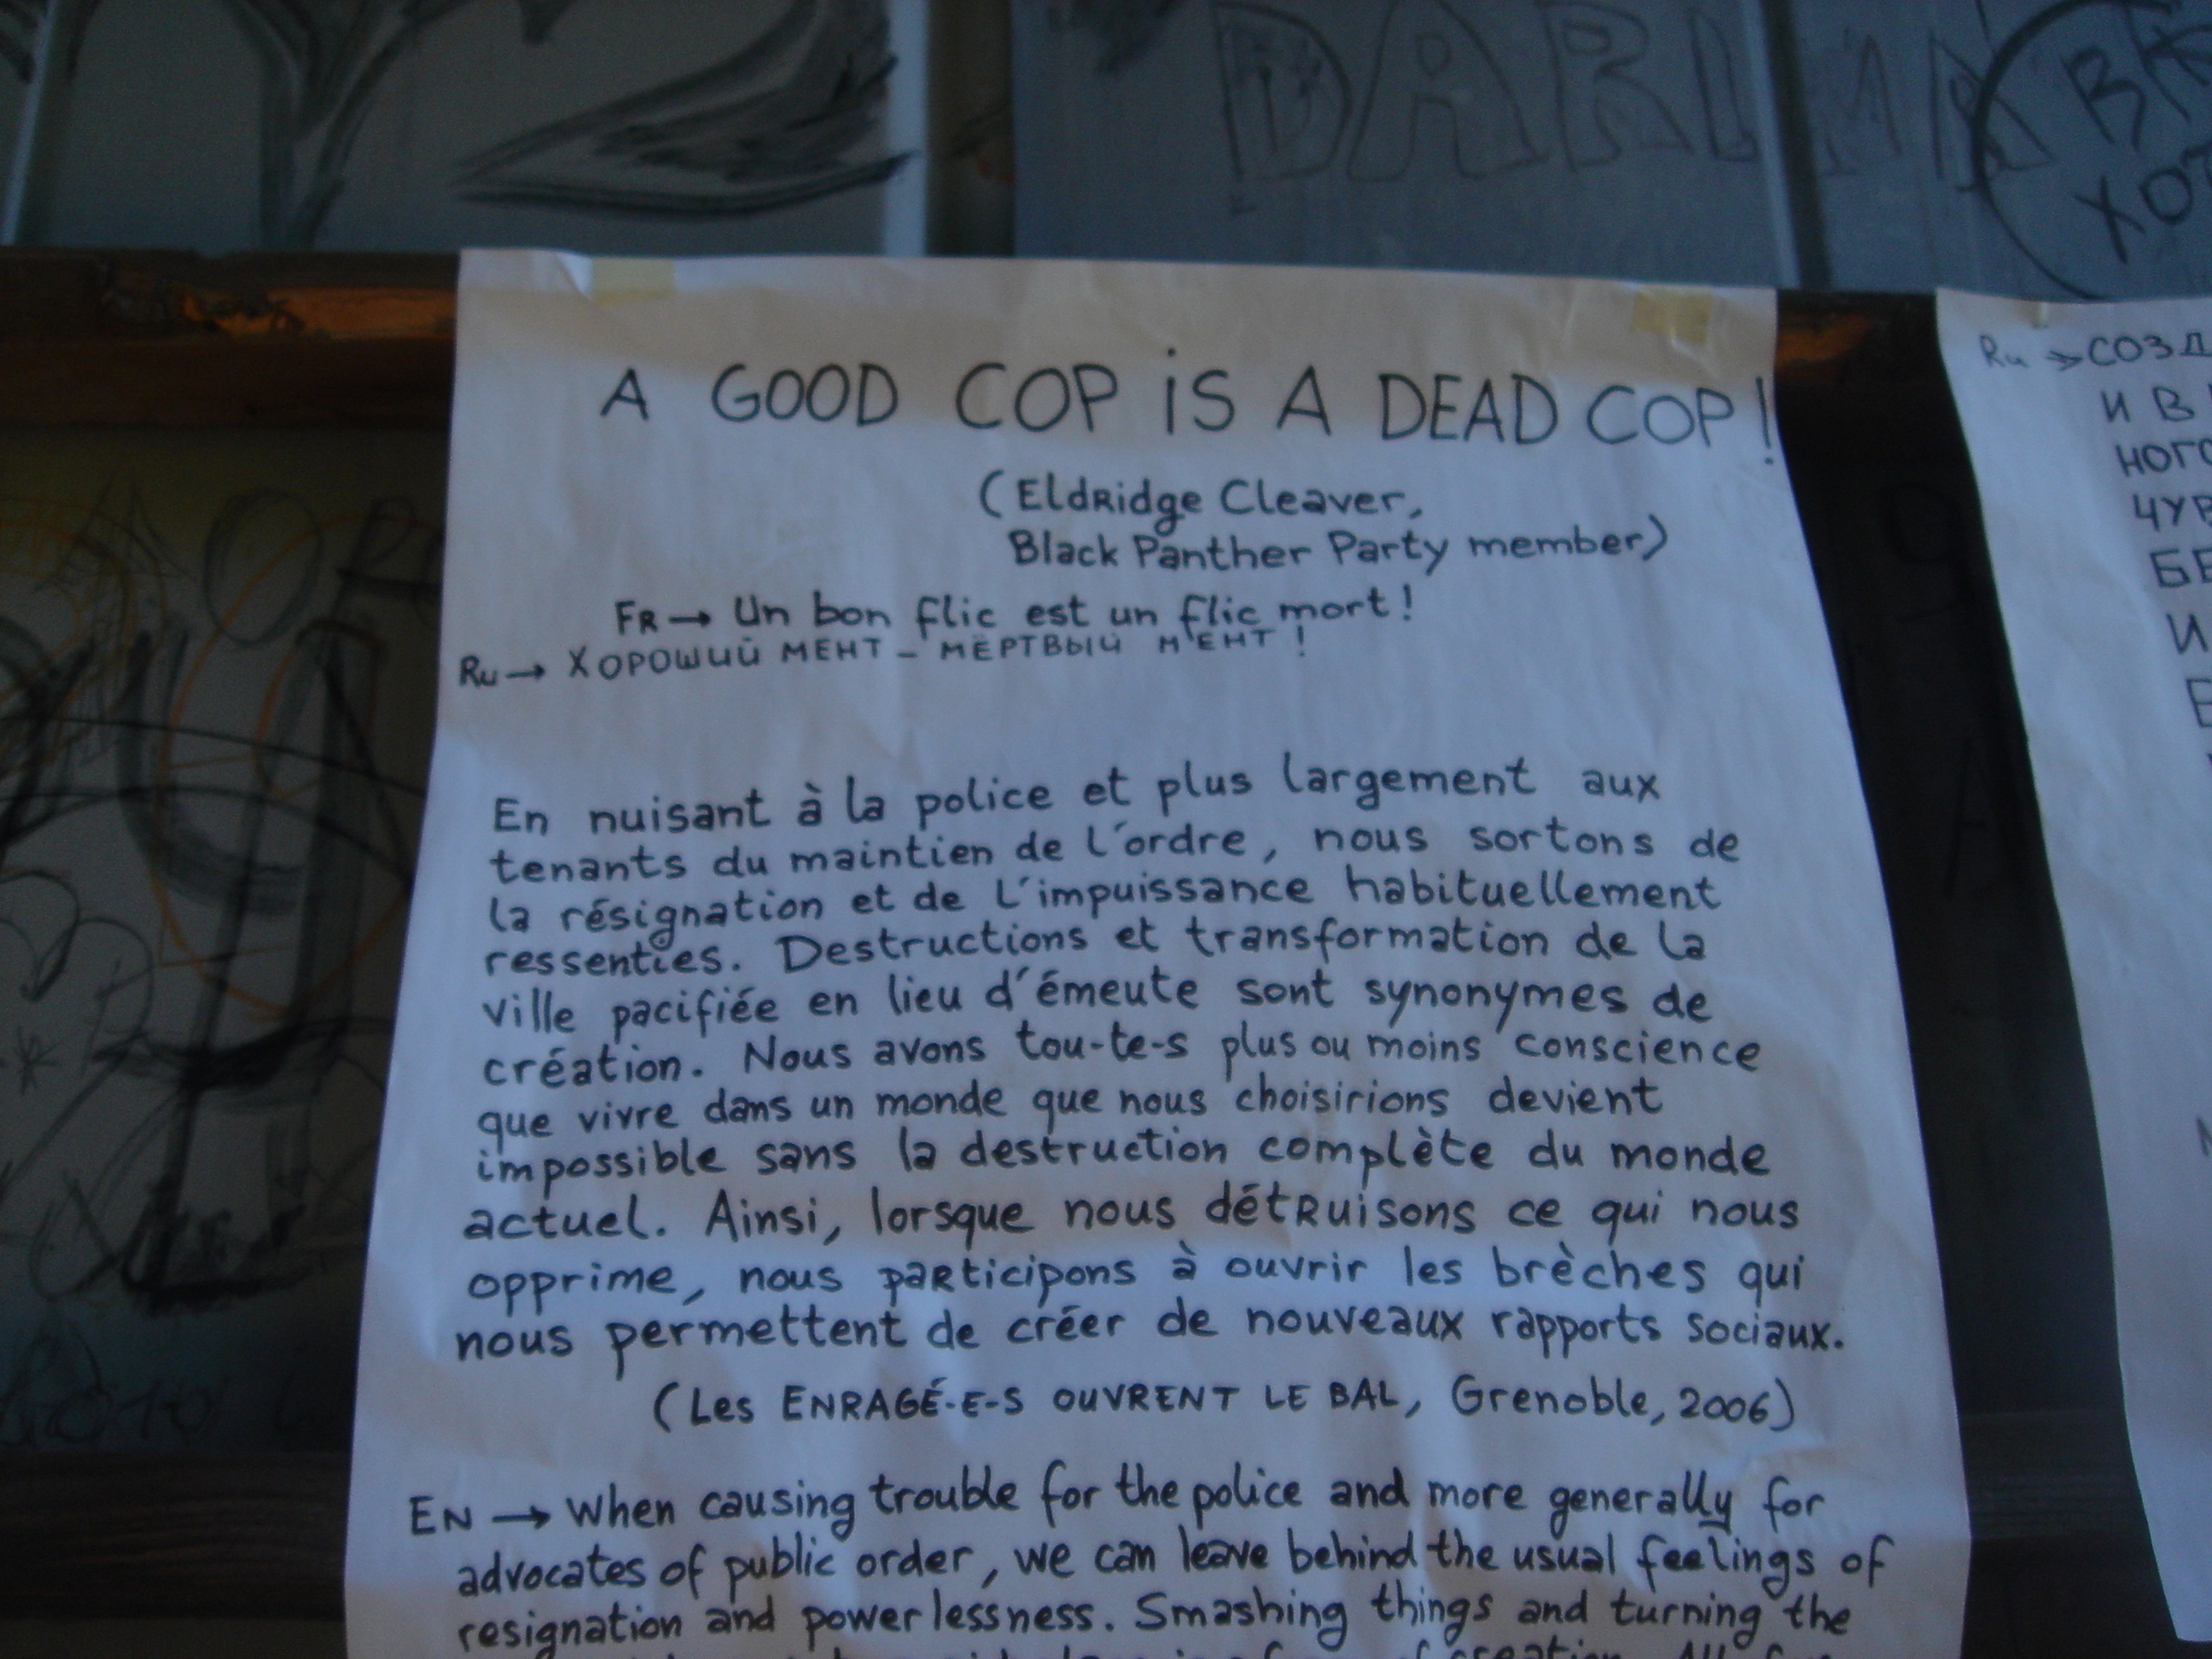 DARINA
ВК
ХОТ
A GOOD COP iS A DEAD COP!
(Eldridge Cleaver,
Black Panther Party member)
FR → Un bon flic est un flic mort!
Ru → ХОРОШИЙ МЕНТ – МЁРТВЫЙ МЕНТ!
En nuisant à la police et plus largement aux
tenants du maintien de l'ordre, nous sortons de
la résignation et de l'impuissance habituellement
ressenties. Destructions et transformation de la
ville pacifiée en lieu d'émeute sont synonymes de
création. Nous avons tou-te-s plus ou moins conscience
que vivre dans un monde que nous choisirions devient
impossible sans la destruction complète du monde
actuel. Ainsi, lorsque nous détruisons ce qui nous
opprime, nous participons à ouvrir les brèches qui
nous permettent de créer de nouveaux rapports sociaux.
(Les ENRAGÉ-E-S OUVRENT LE BAL, Grenoble, 2006)
EN → When causing trouble for the police and more generally for
advocates of public order, we can leave behind the usual feelings of
resignation and powerlessness. Smashing things and turning the
Ru → СОЗД
И В
НОГО
ЧУВ
БЕ
И